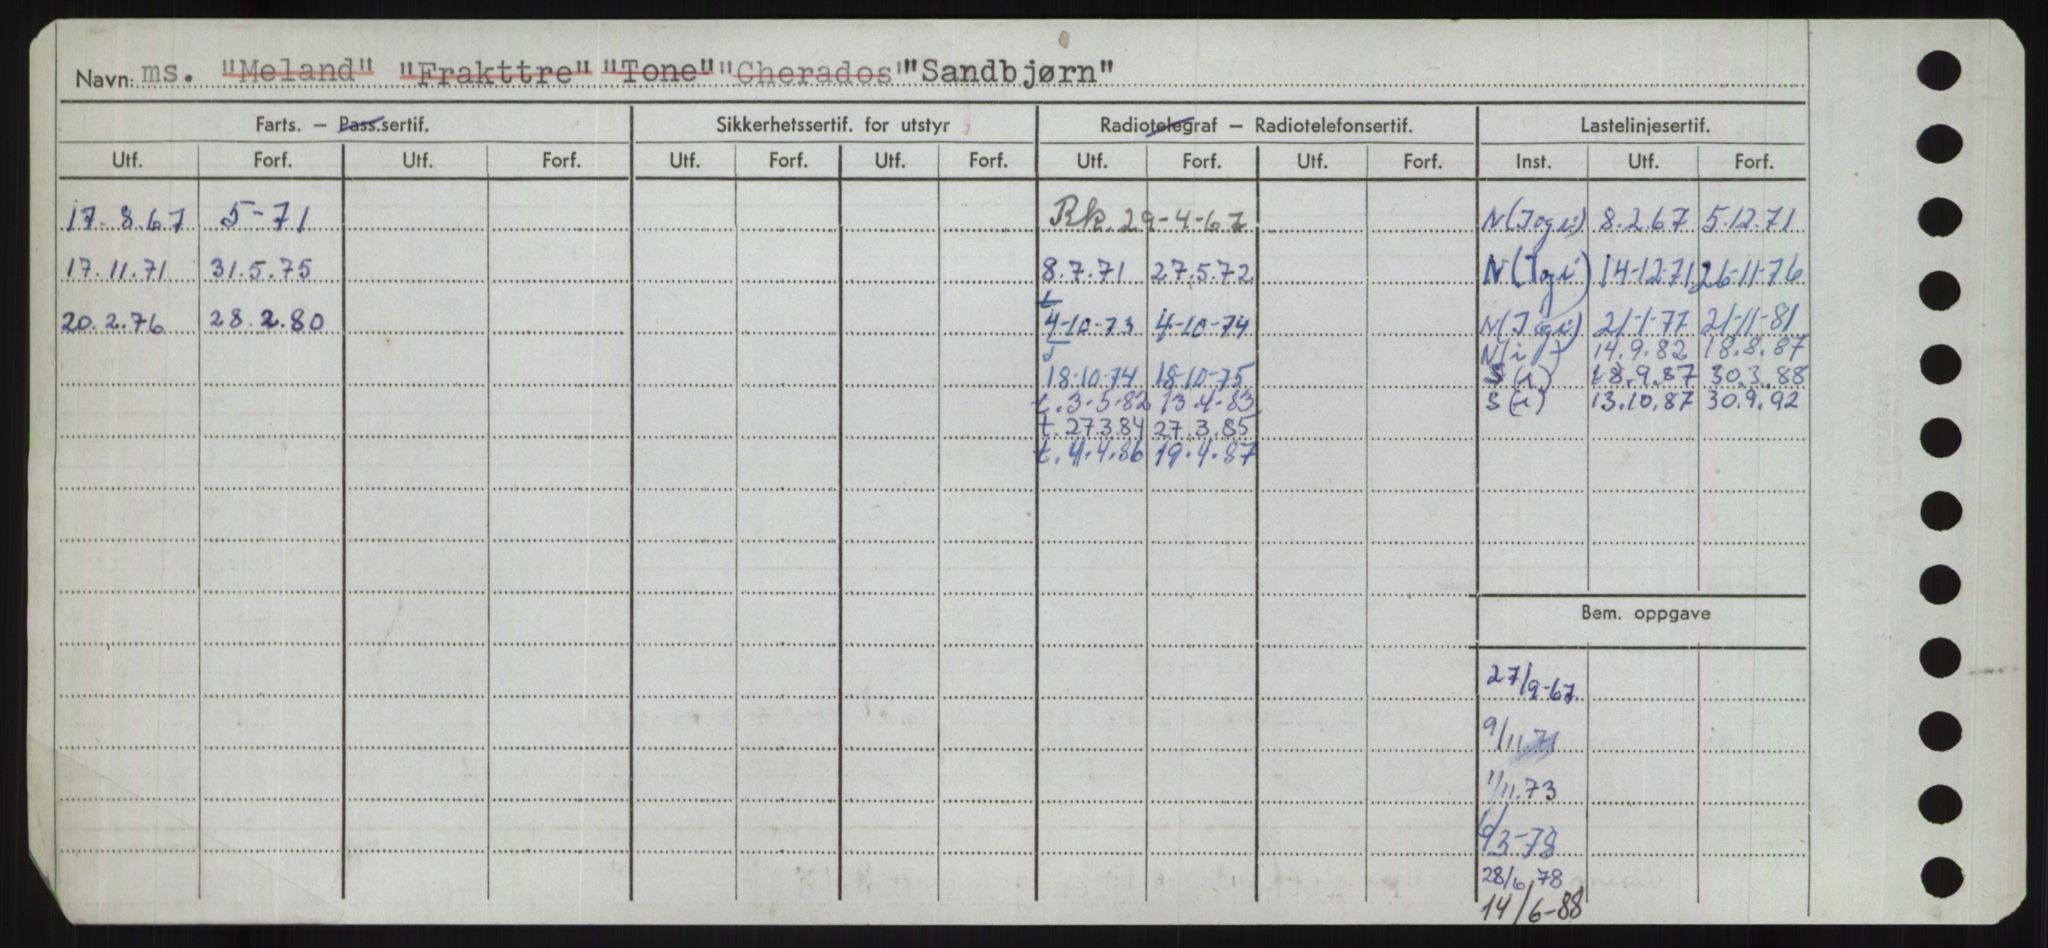 Navn: ms. "Meland" "Frakttre" "Tone" "Cherados" "Sandbjørn"
Farts. – Pass.sertif. Sikkerhetssertif. for utstyr Radiotelegraf – Radiotelefonsertif. Lastelinjesertif.
Utf. Forf. Utf. Forf. Utf. Forf. Utf. Forf. Utf. Forf. Utf. Forf. Inst. Utf. Forf.
17.8.67 5-71 Rk. 29-4-67 N(Jogi) 8.2.67 5.12.71
17.11.71 31.5.75 8.7.71 27.5.72 N(Jgi) 14-12-71 26-11-76
20.2.76 28.2.80 t 4-10-73 4-10-74 N(Jogi) 21-1-77 21-11-81
N(i) 14.9.82 18.8.87
18-10-74 18-10-75 S(i) 18.9.87 30.3.88
t.3-5-82 13.4-83 S(i) 13.10.87 30.9.92
t.27.3.84 27.3.85
t.4.4.86 19.4.87
Bem. oppgave
27/9-67
9/11.71
1/11.73
6/3-78
28/6 78
14/6-88